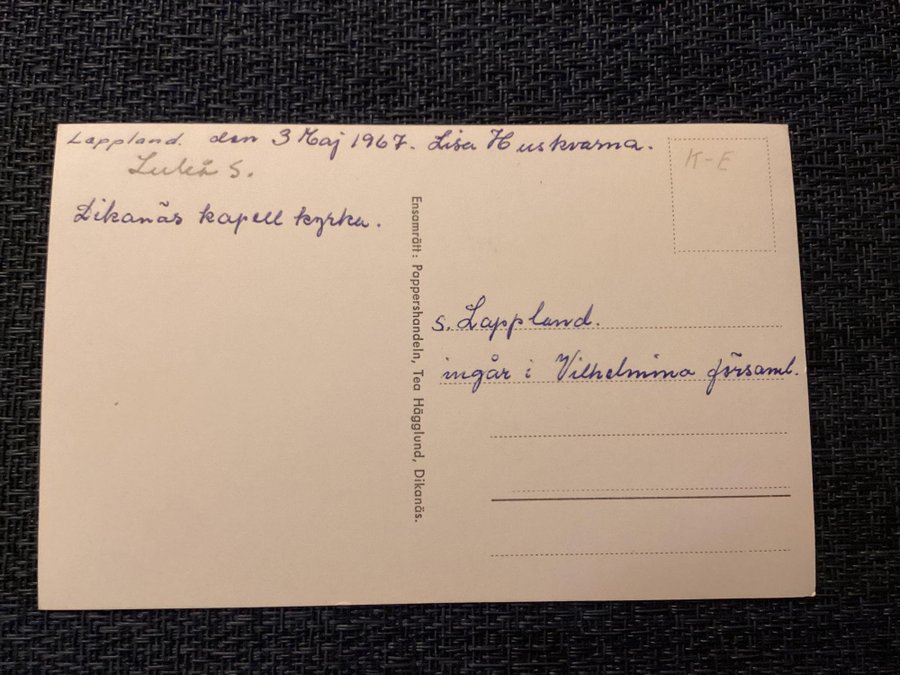 Lappland. den 3 Maj 1967. Lisa Huskvarna.
Luleå S.
K-E
Dikanäs kapell kyrka.
Ensamrätt: Pappershandeln, Tea Hägglund, Dikanäs.
s. Lappland.
ingår i Vilhelmina församl.